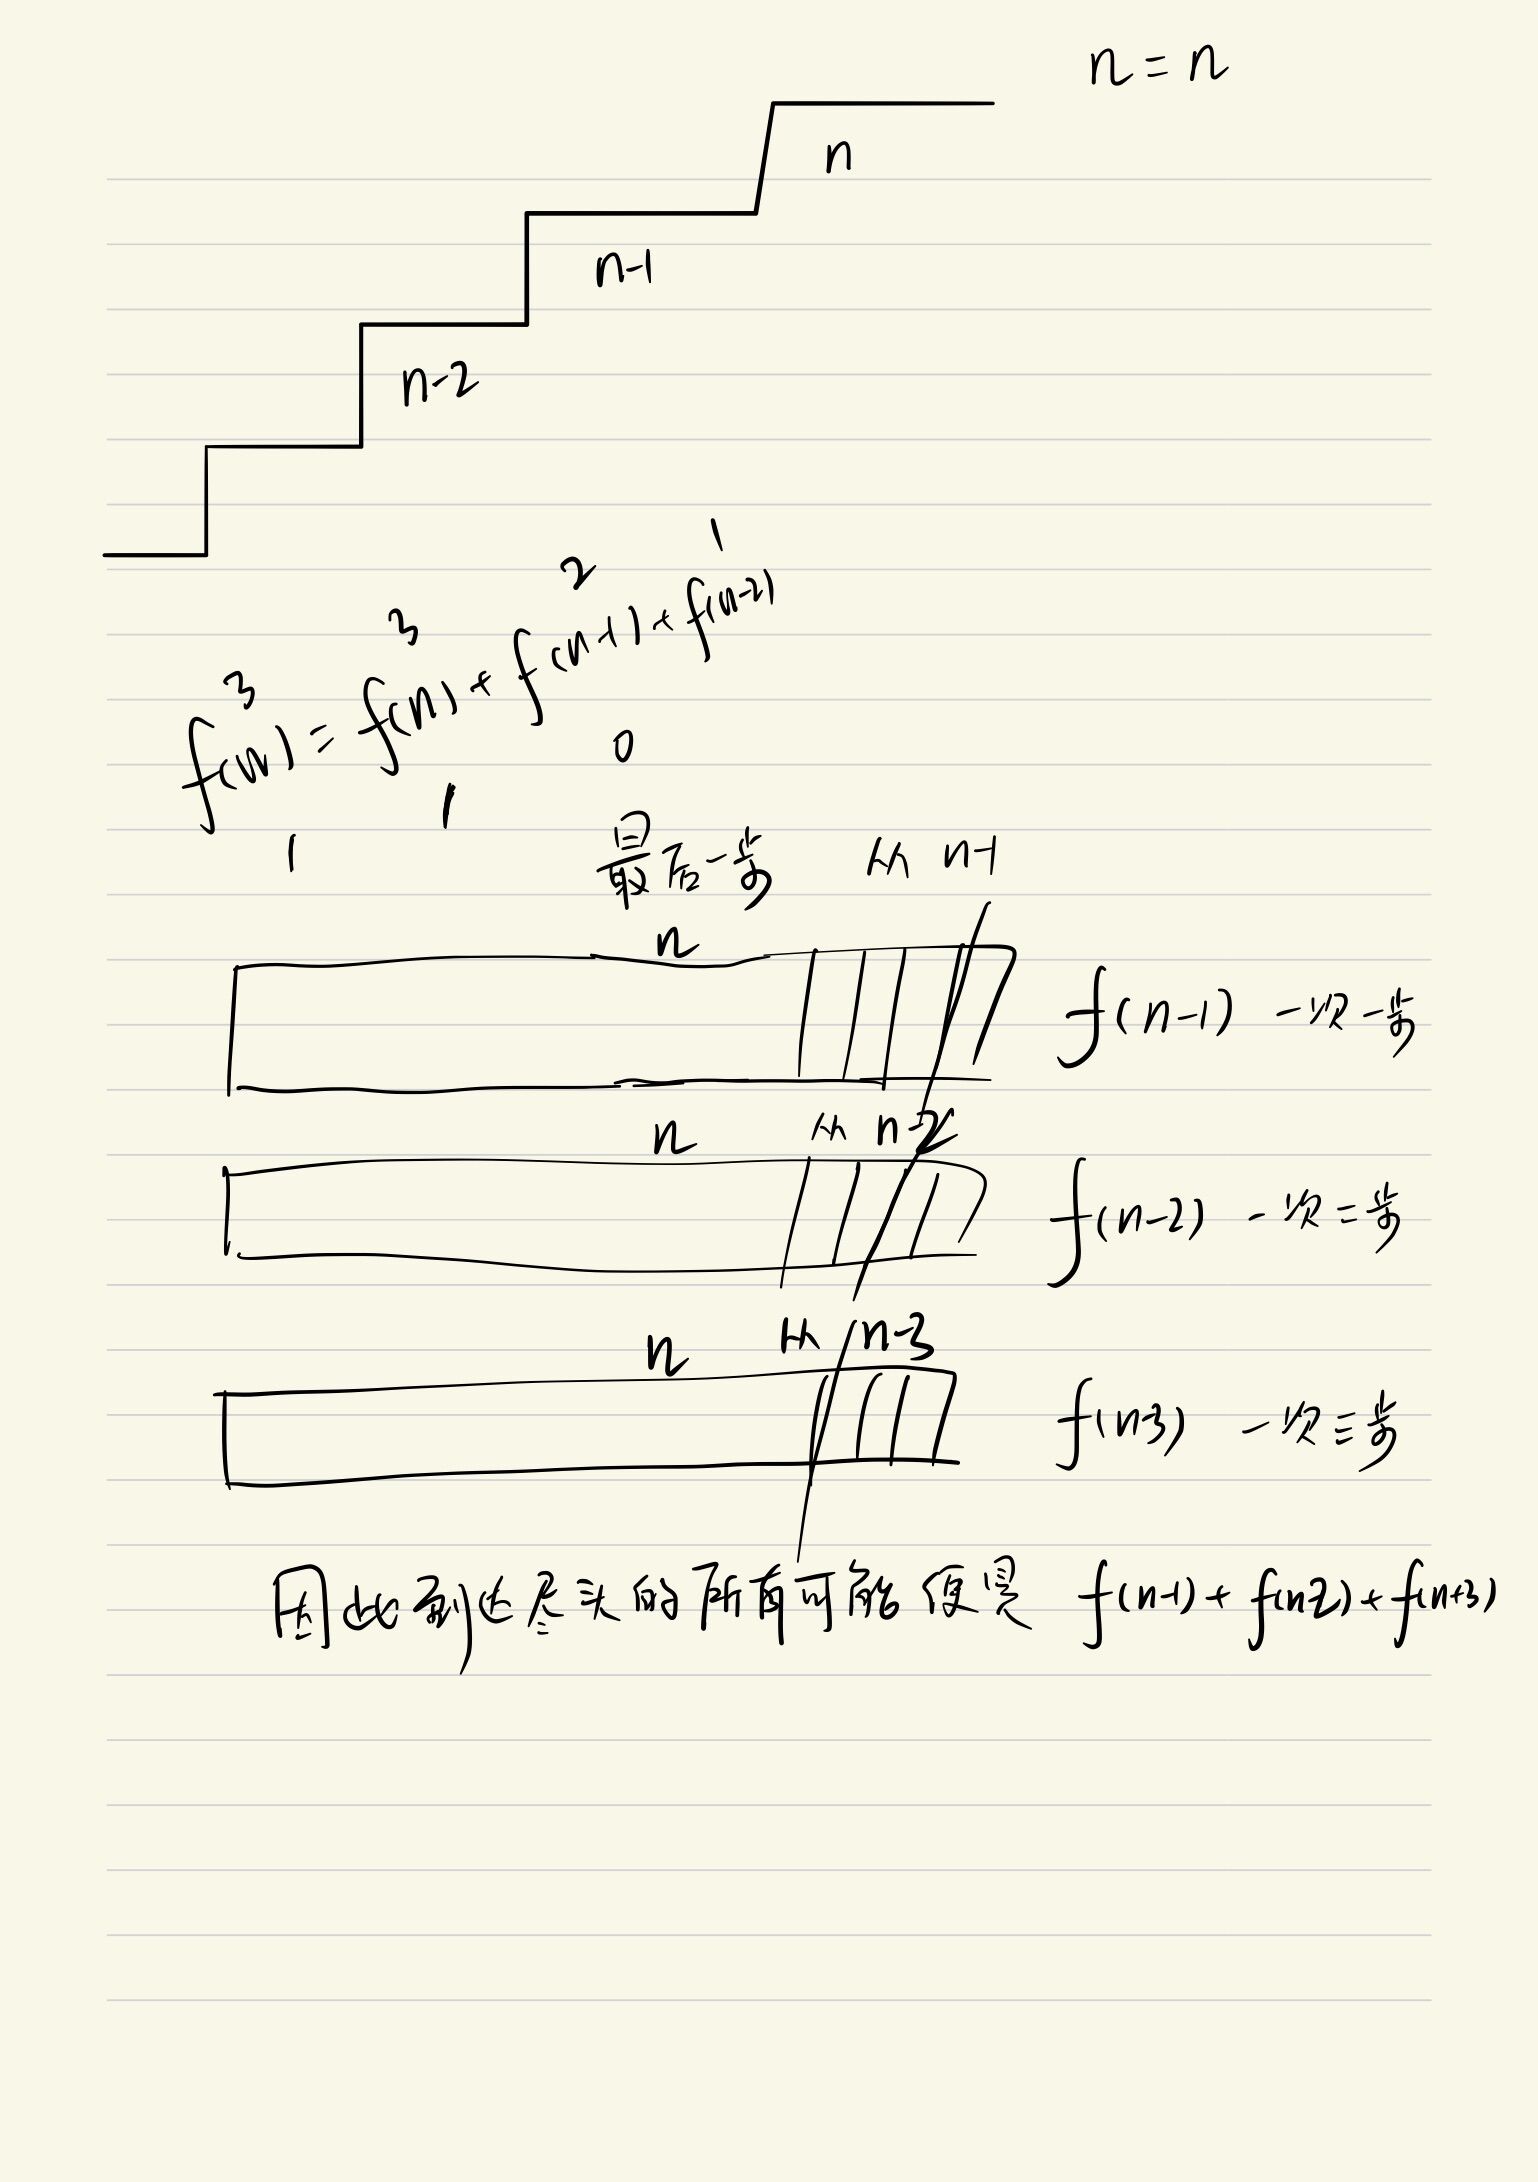 n=n
n
n-1
n-2
3 3 2 1
f(n)=f(n)+f(n-1)+f(n-2)
1 1 0
最后一步 从 n-1
n
f(n-1) 一次一步
n 从 n-2
f(n-2) 一次二步
n 从 n-3
f(n3) 一次三步
因此到达尽头的所有可能便是 f(n-1)+f(n2)+f(n+3)